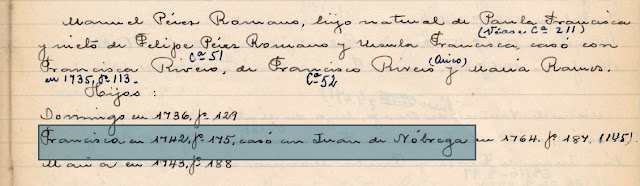 Manuel Pérez Romano, hijo natural de Paula Francisca
(Véase Cª 211)
y nieto de Felipe Pérez Romano y Ursula Francisca, casó con
Francisca Rivero, de Francisco Rivero y María Ramos.
Cª 51
(Quico)
en 1735, fº 113.
Cª 52
Hijos:
Domingo en 1736, fº 129
Francisca en 1742, fº 175, casó con Juan de Nóbrega en 1764. fº 187. (145).
María en 1743, fº 188